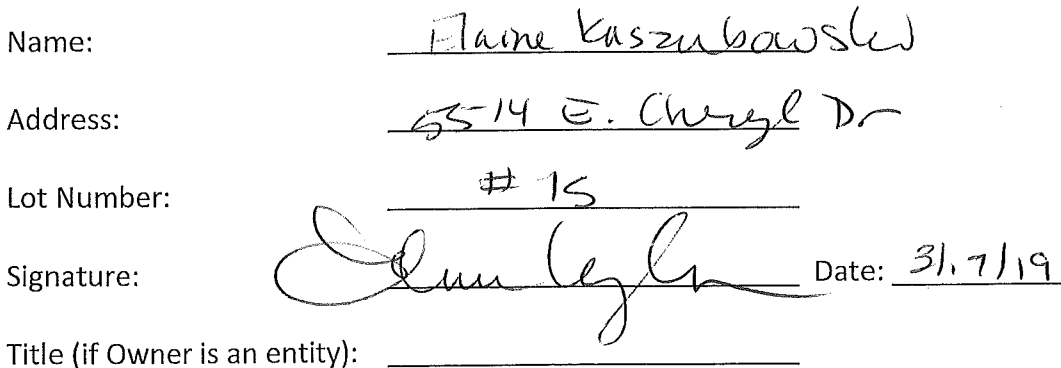 Name: Elaine Kaszubowski
Address: 5514 E. Cheryl Dr
Lot Number: # 15
Signature: Date: 3/17/19
Title (if Owner is an entity):